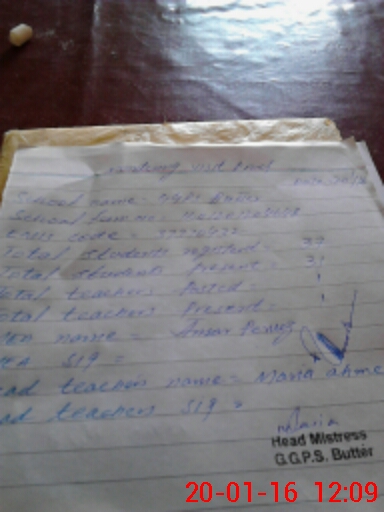 School name = GGPS Butter
School
EMIS code =
Total students registered = 37
Total students present = 31
Total teachers Posted = 1
Total teachers Present = 1
name = Ansar Pervez
sig =
ead teacher name = Maria ahme
ad teachers sig =
Maria
Head Mistress
G.G.P.S. Butter
20-01-16 12:09